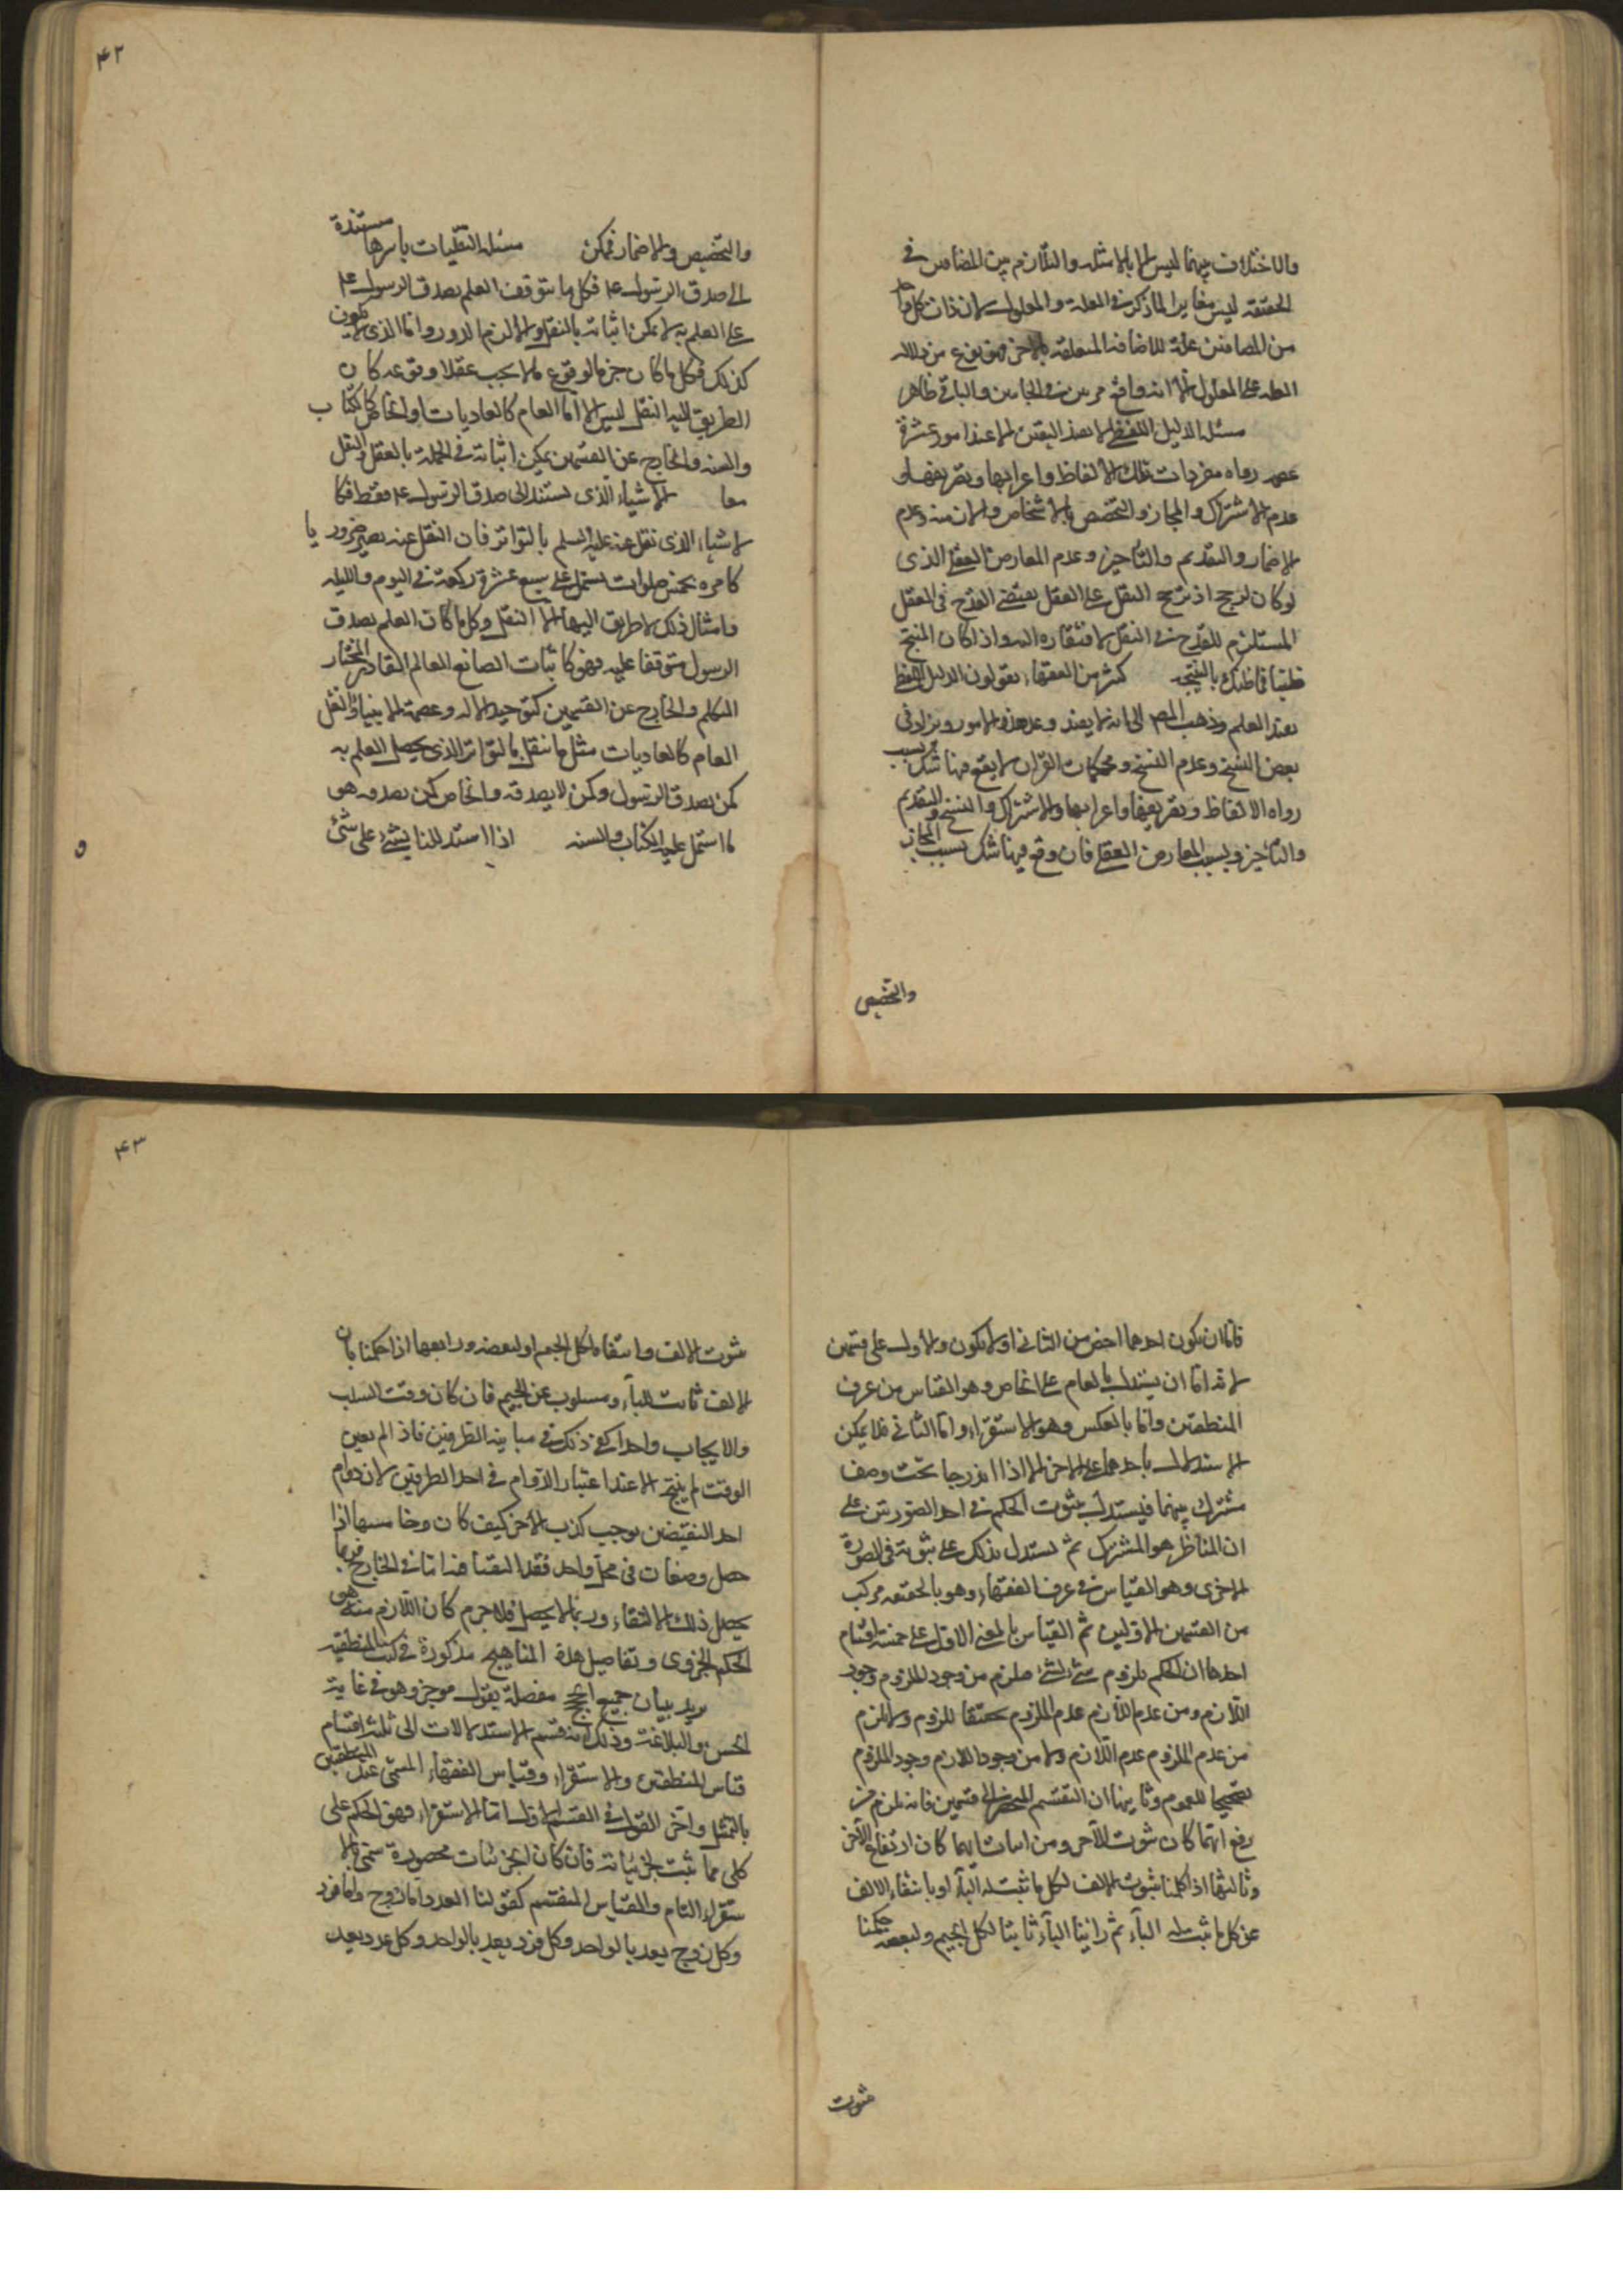 والاختلاف بينهما ليس الا بالامثلة والتلازم بين المضافين في
الحقيقة ليس مغايرا لما ذكر في العلة والمعلول لان ذات كل واحد
من المضافين علة للاضافة المتعلقة بالاخر فهو نوع من دلالة
العلة على المعلول الا انه واقع مرتين من الجانبين والباقي ظاهر
مسئلة الدليل اللفظي لا يفيد اليقين الا عند امور عشرة
عصمة رواة مفردات تلك الالفاظ واعرابها وتصريفها و
عدم الاشتراك والمجاز والتخصيص بالاشخاص والازمنة وعدم
الاضمار والتقديم والتأخير وعدم المعارض العقلي الذي
لو كان لرجح اذ ترجيح النقل على العقل يقتضي القدح في العقل
المستلزم للقدح في النقل لافتقاره اليه واذا كان المنتج
ظنيا فما ظنك بالنتيجة كثير من الفقهاء يقولون الدليل اللفظي
يفيد العلم وذهب المص الى انه لا يفيد وعد هذه الامور ويزاد في
بعض النسخ وعدم النسخ ومحكمات القرآن لا يقع فيها شك بسبب
رواة الالفاظ وتصريفها واعرابها والاشتراك والنسخ والتقديم
والتأخير وبسبب المعارض العقلي فان وقع فيها شك بسبب المجاز
والتخصيص
۴۲
والتخصيص والاضمار فممكن مسئلة النقليات باسرها مستندة
الى صدق الرسول عم فكل ما يتوقف العلم بصدق الرسول عم
على العلم به لا يمكن اثباته بالنقل والا لزم الدور واما الذي لا يكون
كذلك فكل ما كان جزما بوقوع ما لا يجب عقلا وقوعه كان
الطريق اليه النقل ليس الا اما العام كالعاديات او الخاص كالكتاب
والسنة والخارج عن القسمين يمكن اثباته في الجملة بالعقل والنقل
معا الاشياء الذي تستند الى صدق الرسول عم فقط فكا
لاشياء الذي نقل عنه عليه السلم بالتواتر فان النقل عنه يصير ضروريا
كامره بخمس صلوات تشتمل على سبع عشرة ركعة في اليوم والليلة
وامثال ذلك لا طريق اليها الا النقل وكل ما كان العلم بصدق
الرسول متوقفا عليه فهو كاثبات الصانع العالم القادر المختار
المتكلم والخارج عن القسمين كتوحيد الاله وعصمة الانبياء والنقل
العام كالعاديات مثل ما نقل بالتواتر الذي يحصل العلم به
لمن يصدق الرسول ولمن لا يصدقه والخاص لمن يصدقه هو
ما اشتمل عليه الكتاب والسنة اذا استدللنا بشئ على شئ
فاما ان يكون احدهما اخص من الثاني او لا يكون والاول على قسمين
لانه اما ان يستدل بالعام على الخاص وهو القياس من عرف
المنطقيين واما بالعكس وهو الاستقراء واما الثاني فلا يمكن
الاستدلال باحدهما على الاخر الا اذا اندرجا تحت وصف
مشترك بينهما فيستدل بثبوت الحكم في احد الصورتين على
ان المناط هو المشترك ثم يستدل بذلك على ثبوته في الصورة
الاخرى وهو القياس في عرف الفقهاء وهو بالحقيقة مركب
من القسمين الاولين ثم القياس بالمعنى الاول على خمسة اقسام
احدها ان الحكم بلزوم شئ لشئ فيلزم من وجود الملزوم وجود
اللازم ومن عدم اللازم عدم الملزوم تحقيقا للزوم ولا يلزم
من عدم الملزوم عدم اللازم ولا من وجود اللازم وجود الملزوم
تصحيحا للعموم وثانيها ان التقسيم المنحصر الى قسمين فانه يلزم من
رفع ايهما كان ثبوت الآخر ومن اثبات ايهما كان ارتفاع الآخر
وثالثها اذا حكمنا بثبوت الالف لكل ما ثبت له الباء او بانتفاء الالف
عن كل ما ثبت له الباء ثم رأينا الباء ثابتا لكل الجيم ولبعضه حكمنا
ثبوت
۴۳
ثبوت الالف وانتفائه لكل الجيم او لبعضه ورابعها اذا حكمنا بان
الالف ثابت للباء ومسلوب عن الجيم فان كان وقت السلب
والايجاب واحدا كفى ذلك في مباينة الطرفين فاذا لم يعين
الوقت لم ينتج الا عند اعتبار الدوام في احد الطرفين لان دوام
احد النقيضين يوجب كذب الاخر كيف كان وخامسها اذا
حصل وصفان في محل واحد فقد التقيا هنا اما في الخارج فربما
يحصل ذلك الالتقاء وربما لا يحصل فلا جرم كان اللازم منه هو
الحكم الجزوى وتفاصيل هذه المناهج مذكورة في كتبنا المنطقية
يريد بيان جميع الحجج مفصلة بقول موجز وهو في غاية
الحسن والبلاغة وذلك انه قسم الاستدلالات الى ثلثة اقسام
قياس المنطقيين والاستقراء وقياس الفقهاء المسمى عند المنطقيين
بالتمثيل وآخر القول في القسم الاول اما الاستقراء فهو الحكم على
كلى مما ثبت لجزئياته فان كان الجزئيات محصورة سمى بالا
ستقراء التام والقياس المقسم كقولنا العدد اما زوج واما فرد
وكل زوج يعد بالواحد وكل فرد يعد بالواحد وكل عدد يعد